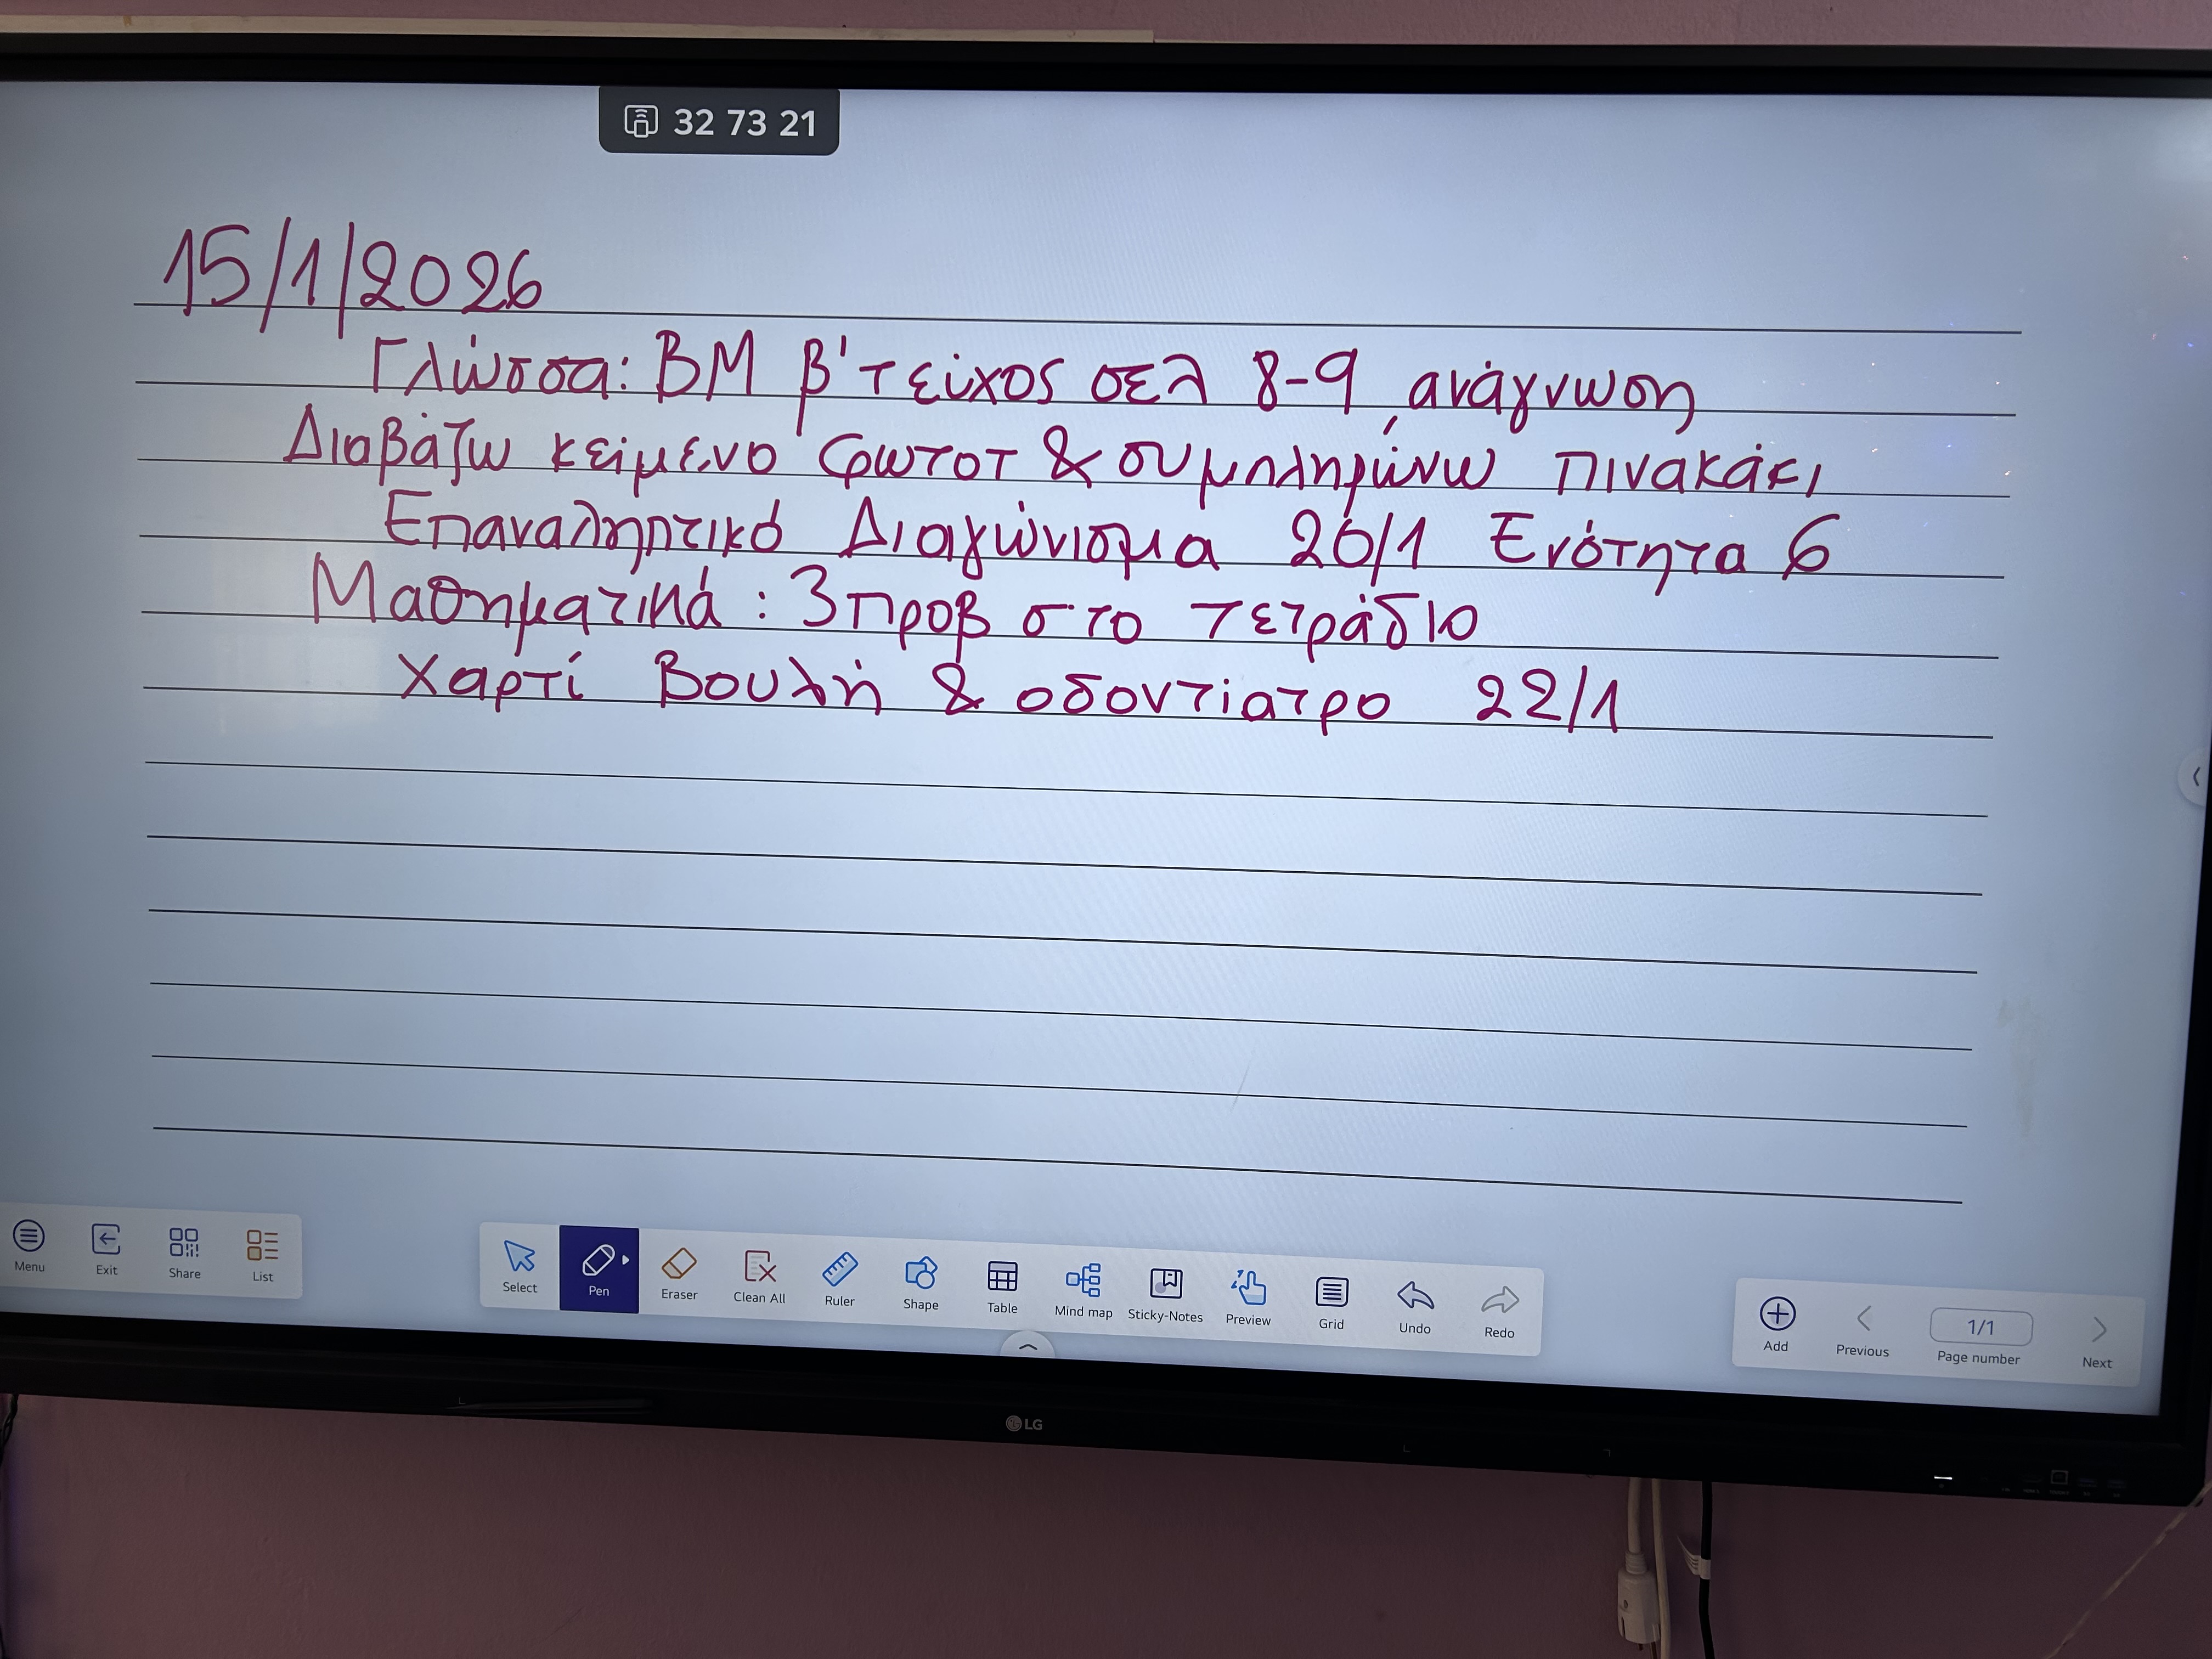 32 73 21
15/1/2026
Γλώσσα: ΒΜ β' τεύχος σελ 8-9 ανάγνωση
Διαβάζω κείμενο φωτοτ & συμπληρώνω πινακάκι
Επαναληπτικό Διαγώνισμα 20/1 Ενότητα 6
Μαθηματικά: 3 προβ στο τετράδιο
Χαρτί Βουλή & οδοντίατρο 22/1
Menu Exit Share List
Select Pen Eraser Clean All Ruler Shape Table Mind map Sticky-Notes Preview Grid Undo Redo
Add Previous 1/1 Page number Next
LG